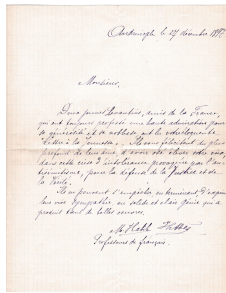 le 27 décembre 1897
Monsieur,
Deux jeunes Levantins, amis de la France,
qui ont toujours professé une haute admiration pour
sa générosité et sa noblesse ont lu votre éloquente
"Lettre à la Jeunesse". Ils vous félicitent du plus
profond de leur cœur, d'avoir osé élever votre voix,
dans cette crise d'intolérance provoquée par l'an-
tisémitisme, pour la défense de la Justice et de
la Vérité.
Ils ne peuvent s'empêcher en terminant d'expri-
mer leur sympathie au solide et clair génie qui a
produit tant de belles œuvres.
Professeurs de français.